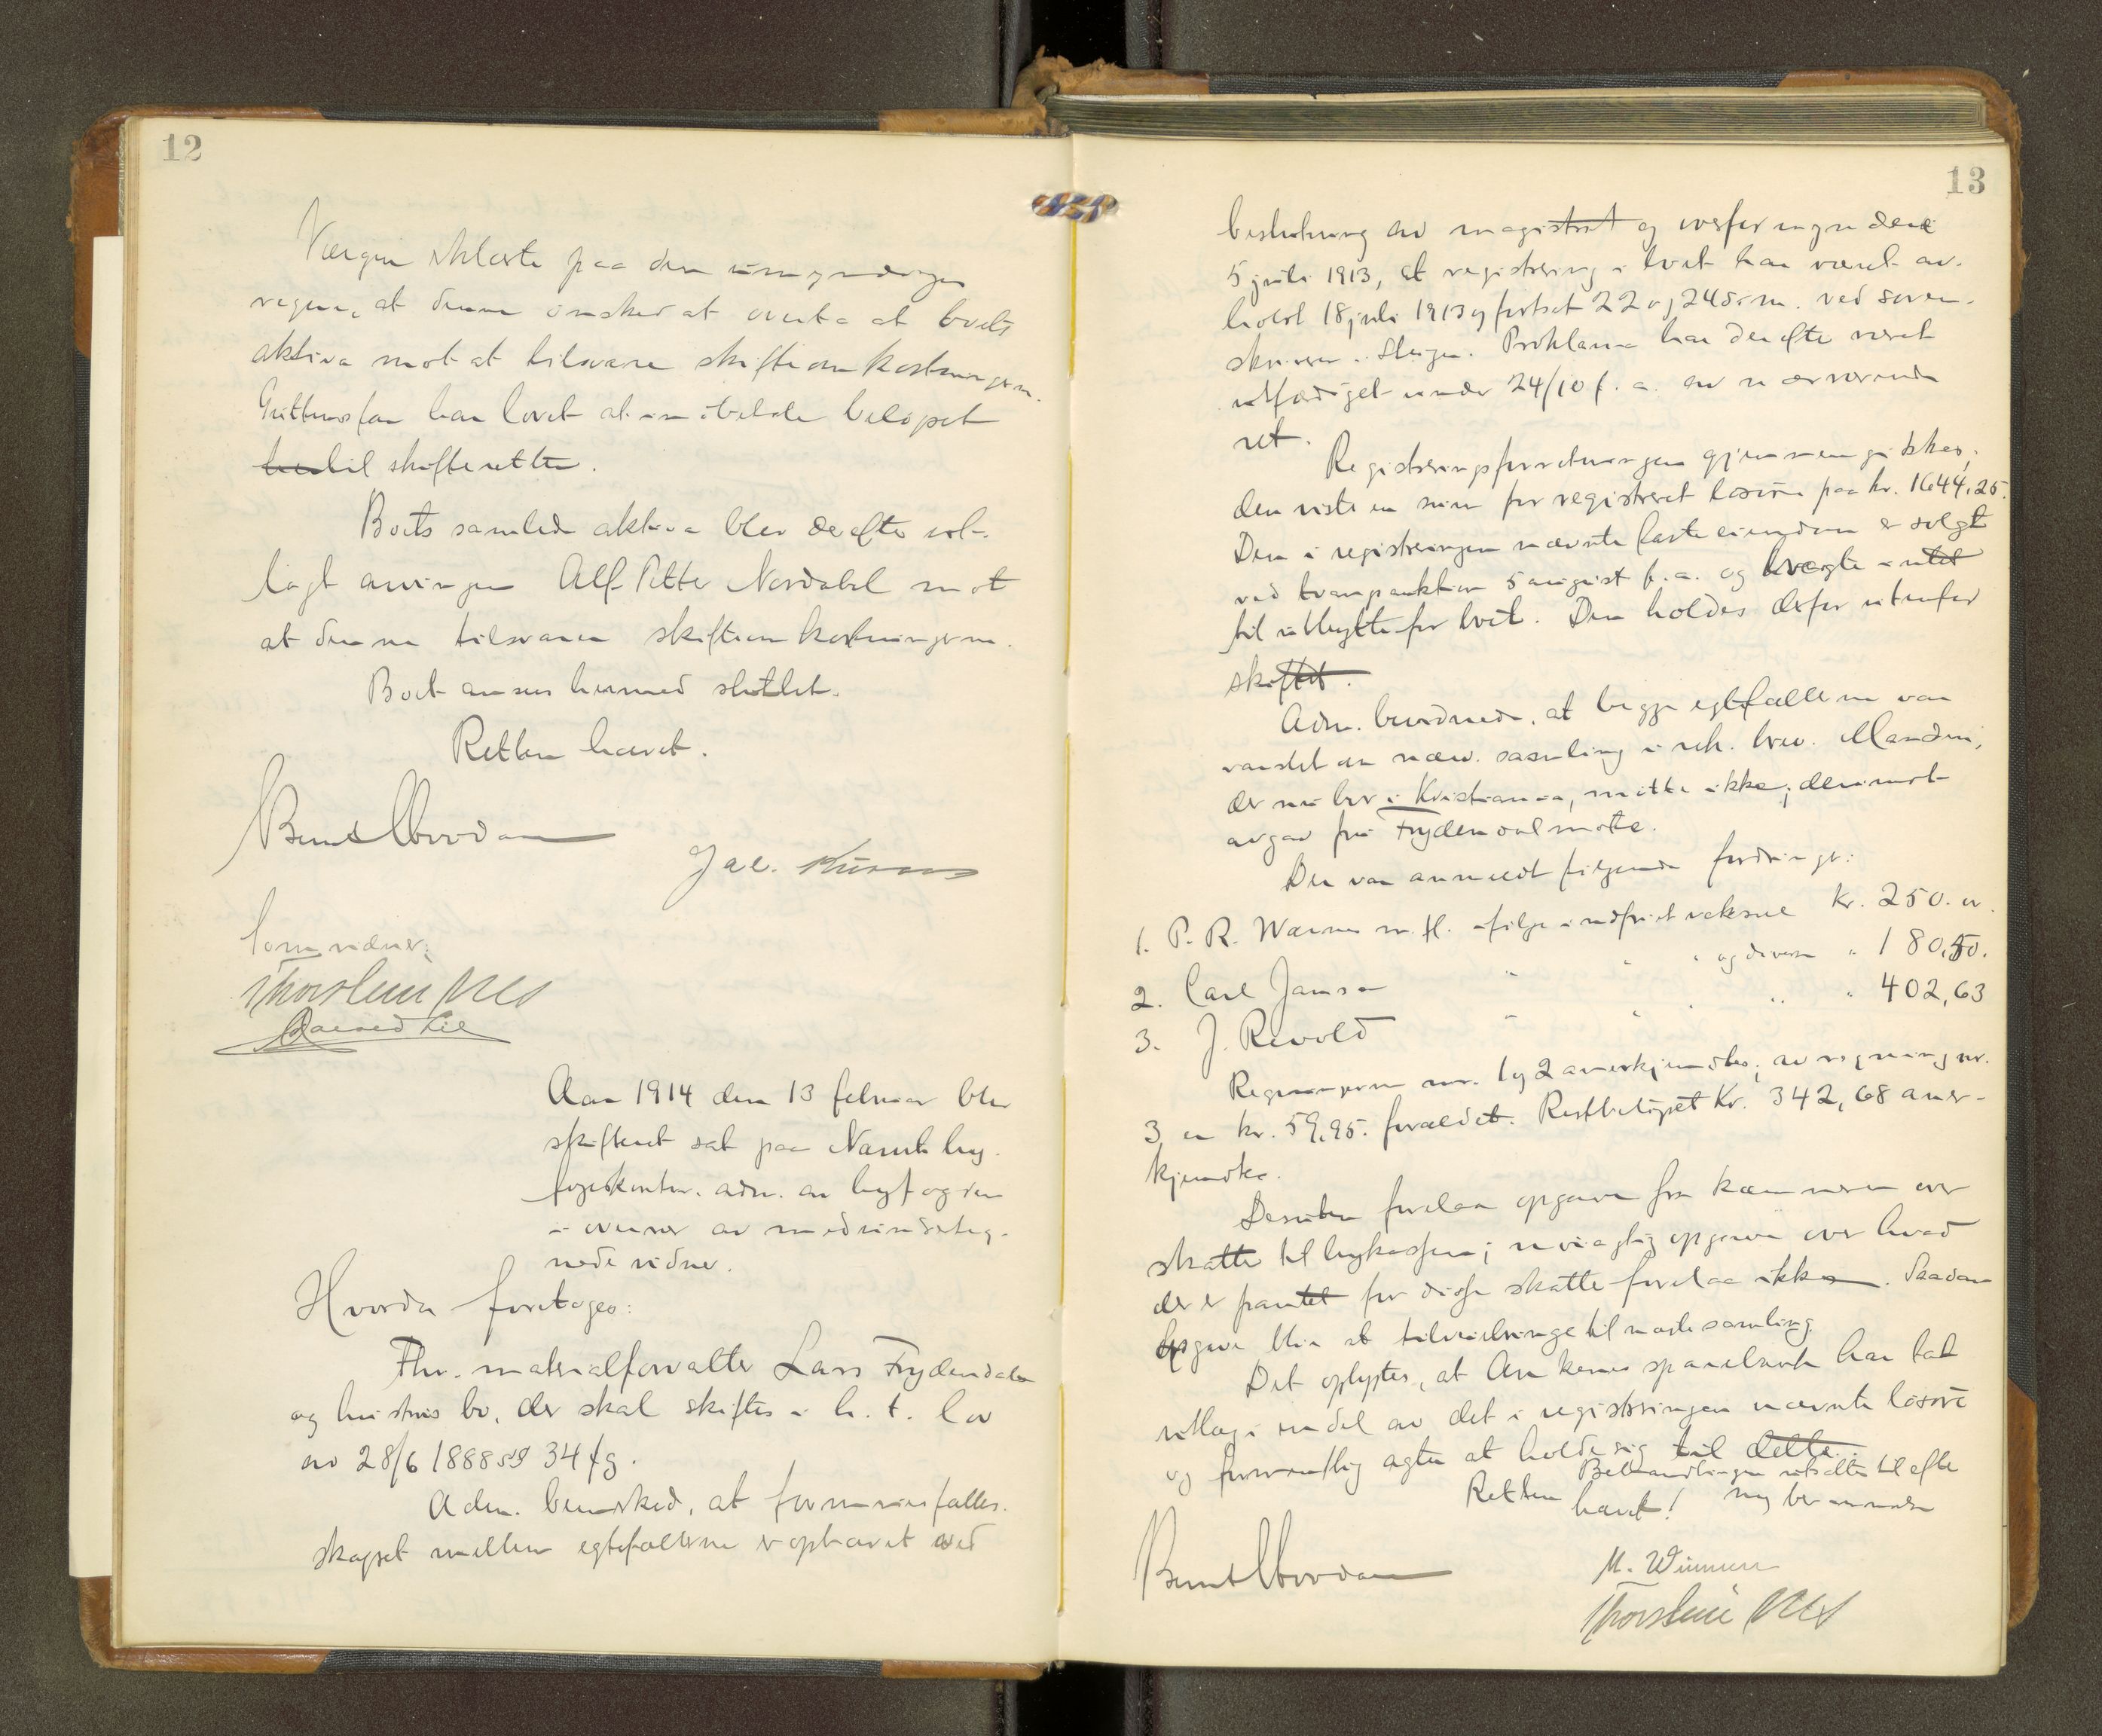 12
Værgen erklærte paa den umyndiges
vegne, at denne ønsked at overta at boets
aktiva mot at tilsvare skifteomkostningerne.
har lovet at indbetale beløpet
til skifteretten.
Boets samlede aktiva blev derefter ut-
lagt arvingen Alf Petter Nordahl mot
at denne tilsvarer skifteomkostningerne.
Boet ansees hermed sluttet.
Retten hævet.
Jac.
Som vidner:
Thorstein
Aar 1914 den 13 februar blev
skifteret sat paa Narvik by-
fogdkontor. adm. av byfogden
i overvær av medunderteg-
nede vidner.
Hvorda foretoges:
Fhv. materialforvalter Lars Frydendals
og hustrus bo, der skal skiftes i h. t. lov
av 28/6 1888 §§ 34 flg.
Adm. bemerked, at formuesfælles-
skapet mellem egtefællerne er ophævet ved
13
beslutning av magistrat og overformynderi
5 juli 1913, at registrering i boet har været av-
holdt 18 juli 1913 og fortsat 22 og 24 s. m. ved soren-
skriveren i Steigen. Proklama har derefter været
utfærdiget under 24/10 f. a. av nærværende
ret.
Registreringsforretningen gjennemgikkes;
den viste en sum for registreret løsøre paa kr. 1644,25.
Den i registreringen nævnte faste eiendom er solgt
ved tvangsauktion 5 august f. a. og bragte intet
til utbytte for boet. Den holdes derfor utenfor
skiftet.
Adm. bemerkede, at begge egtefællerne var
varslet om næv. samling i rek. brev. Manden,
der nu bor i Kristiania, møtte ikke; derimot
avgav fru Frydendal møte.
Der var anmeldt følgende fordringer:
1. P. R. Warner m. fl. ifølge indfriet veksel Kr. 250. 
2. Carl Jensen " " " og diverse " 180,50.
3. J. Revold " " " " " 402,63
Regningerne nr. 1 og 2 anerkjendtes; av regning nr.
3 er kr. 59,95. forældet. Restbeløpet Kr. 342,68 aner-
kjendtes.
Desuten forelaa opgave fra kæmneren over
skatte til bykassen; nøiagtig opgave over hvad
der er pantet for disse skatte forelaa ikke. Saadan
opgave blir at tilveiebringe til næste samling.
Det oplystes, at Ankenes sparebank har tat
utlæg i en del av det i registreringen nævnte løsøre
og formentlig agter at holde sig til dette.
Behandlingen utsattes til efter
ny berammelse
Retten hævet!
M.
Thorstein